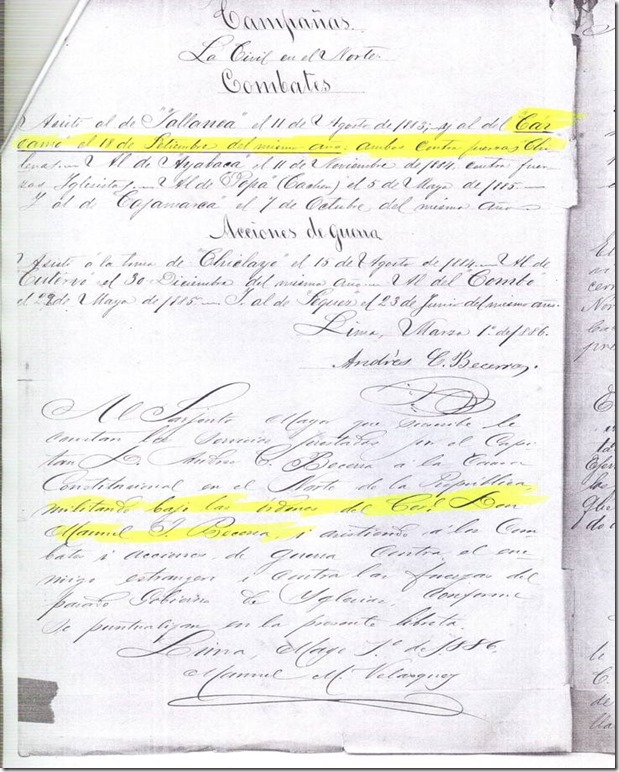 Campañas
La Civil en el Norte
Combates
Asistó al de "Pallanca" el 11 de Agosto de 1883; y al del "Cár-
camo" el 18 de Setiembre del mismo año, ambos contra fuerzas Chi-
lenas. Al de Ayabaca el 11 de Noviembre de 1884 contra fuer-
zas Iglesistas. Al de (Cachen) el 5 de Mayo de 1885.
Y al de "Cajamarca" el 7 de Octubre del mismo año
Acciones de guerra
Asistó á la toma de "Chiclayo" el 15 de Agosto de 1884. Al de
Cutervo el 30 Diciembre del mismo año. Al del "Combo"
el 29 de Mayo de 1885. Y al de el 23 de Junio del mismo año.
Lima, Marzo 1º de 1886.
Andrés C. Becerra.
Al Sarjento Mayor que suscribe le
constan los servicios prestados por el Capi-
tan D. Andres C. Becerra a la Causa
Constitucional en el Norte de la República,
militando bajo las órdenes del Corl. Don
Manuel J. Becerra, i asistiendo á los Com-
bates i acciones de guerra contra el ene-
migo estrangero i contra las fuerzas del
pasado Gobierno de Yglesias, conforme
se puntualizan en la presente libreta.
Lima, Mayo 1º de 1886.
Manuel M. Velasquez